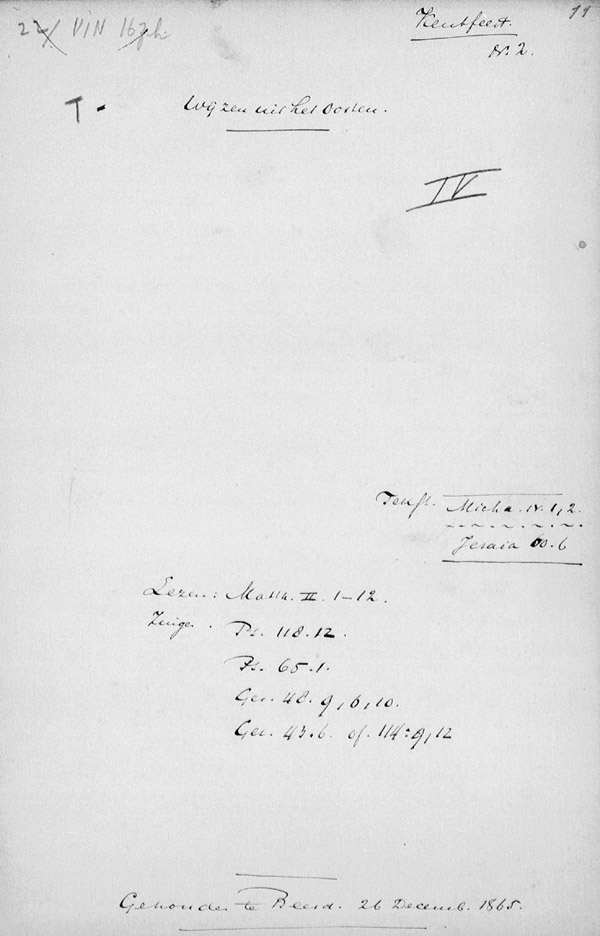 22 VIN 167h 11
Kerstfeest.
N. 2.
T.
Wijzen uit het Oosten.
IV
Tekst. Micha. IV. 1, 2.
Jesaia 60.6
Lezen: Matth. II. 1-12.
Zingen. Ps. 118.12.
Ps. 65.1.
Gez. 48. 9, 6, 10.
Gez. 43.6. of. 114:9, 12
Gehouden te Beesd. 26 Decemb. 1865.